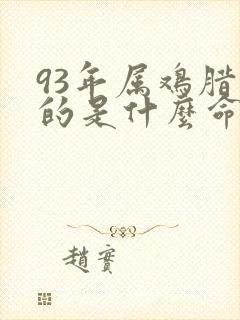 93年属鸡腊
的是什麼命
趙實